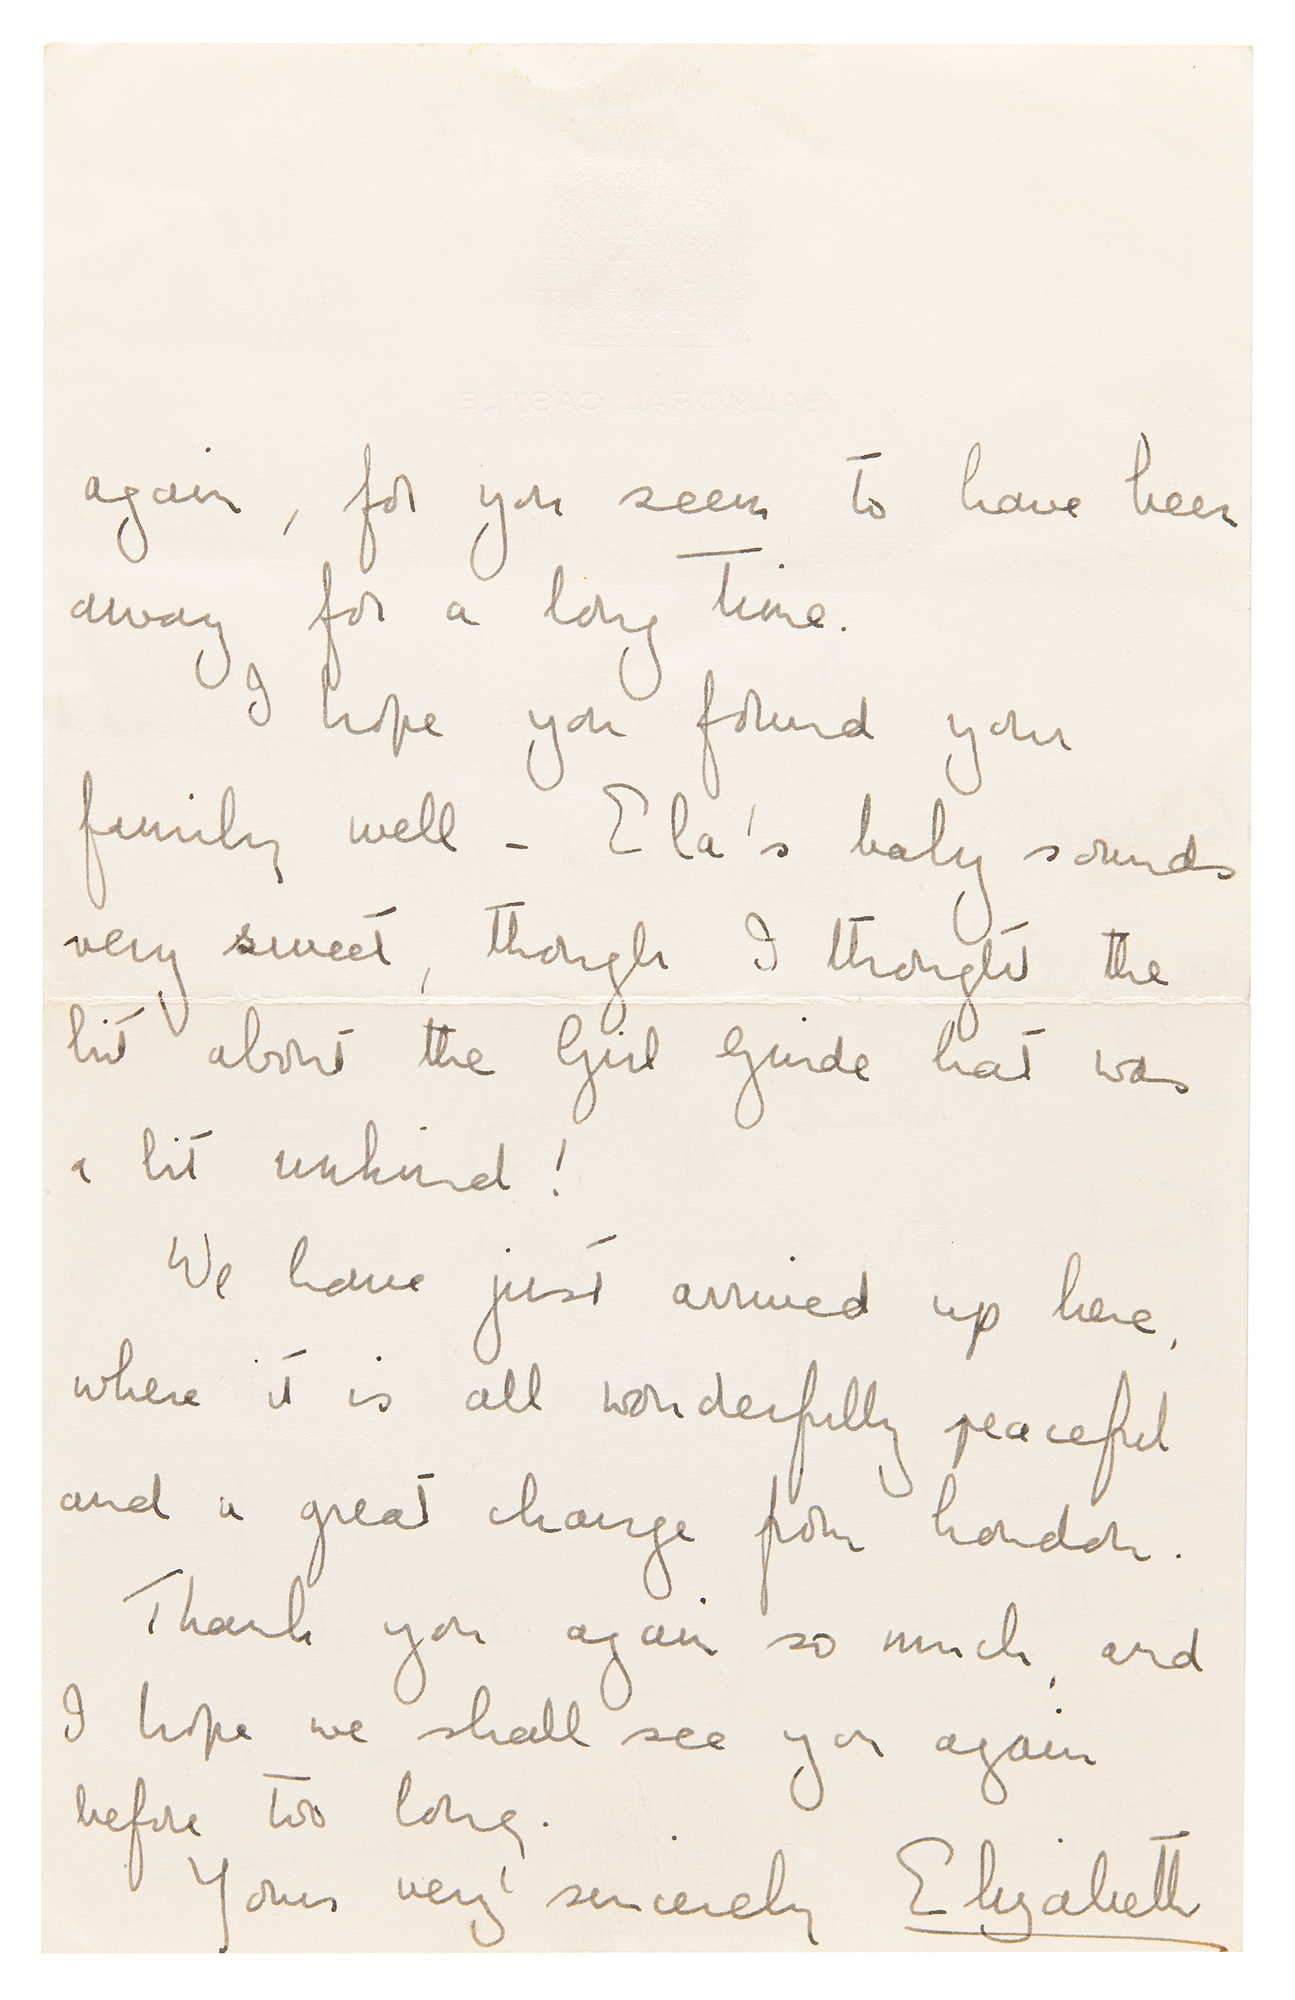 BALMORAL CASTLE
again, for you seem to have been
away for a long time.
I hope you found your
family well - Ela's baby sounds
very sweet, though I thought the
bit about the Girl Guide hat was
a bit unkind!
We have just arrived up here,
where it is all wonderfully peaceful
and a great change from London.
Thank you again so much, and
I hope we shall see you again
before too long.
Yours very sincerely Elizabeth